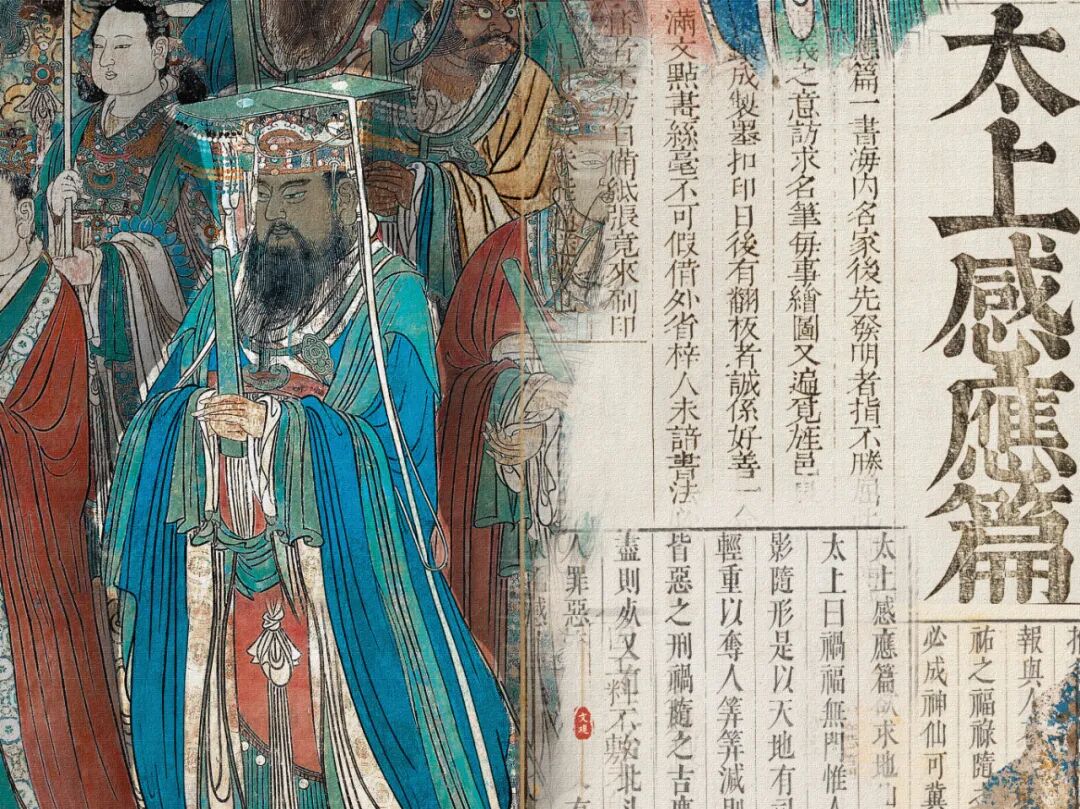 太上感應篇
應篇一書海內名家後先發明者指不勝屈
義之意訪求名筆每事繪圖又遍覓旌邑
成製墨扣印日後有翻板者誠係好善
滿文點畫絲毫不可假借外省梓人未諳書法
妨自備紙張竟來刷印
報與人
祐之福祿隨
必成神仙可冀
太上感應篇 欲求地
太上曰禍福無門惟人
影隨形是以天地有
輕重以奪人筭筭減則
皆惡之刑禍隨之吉慶
盡則死又有
人罪惡